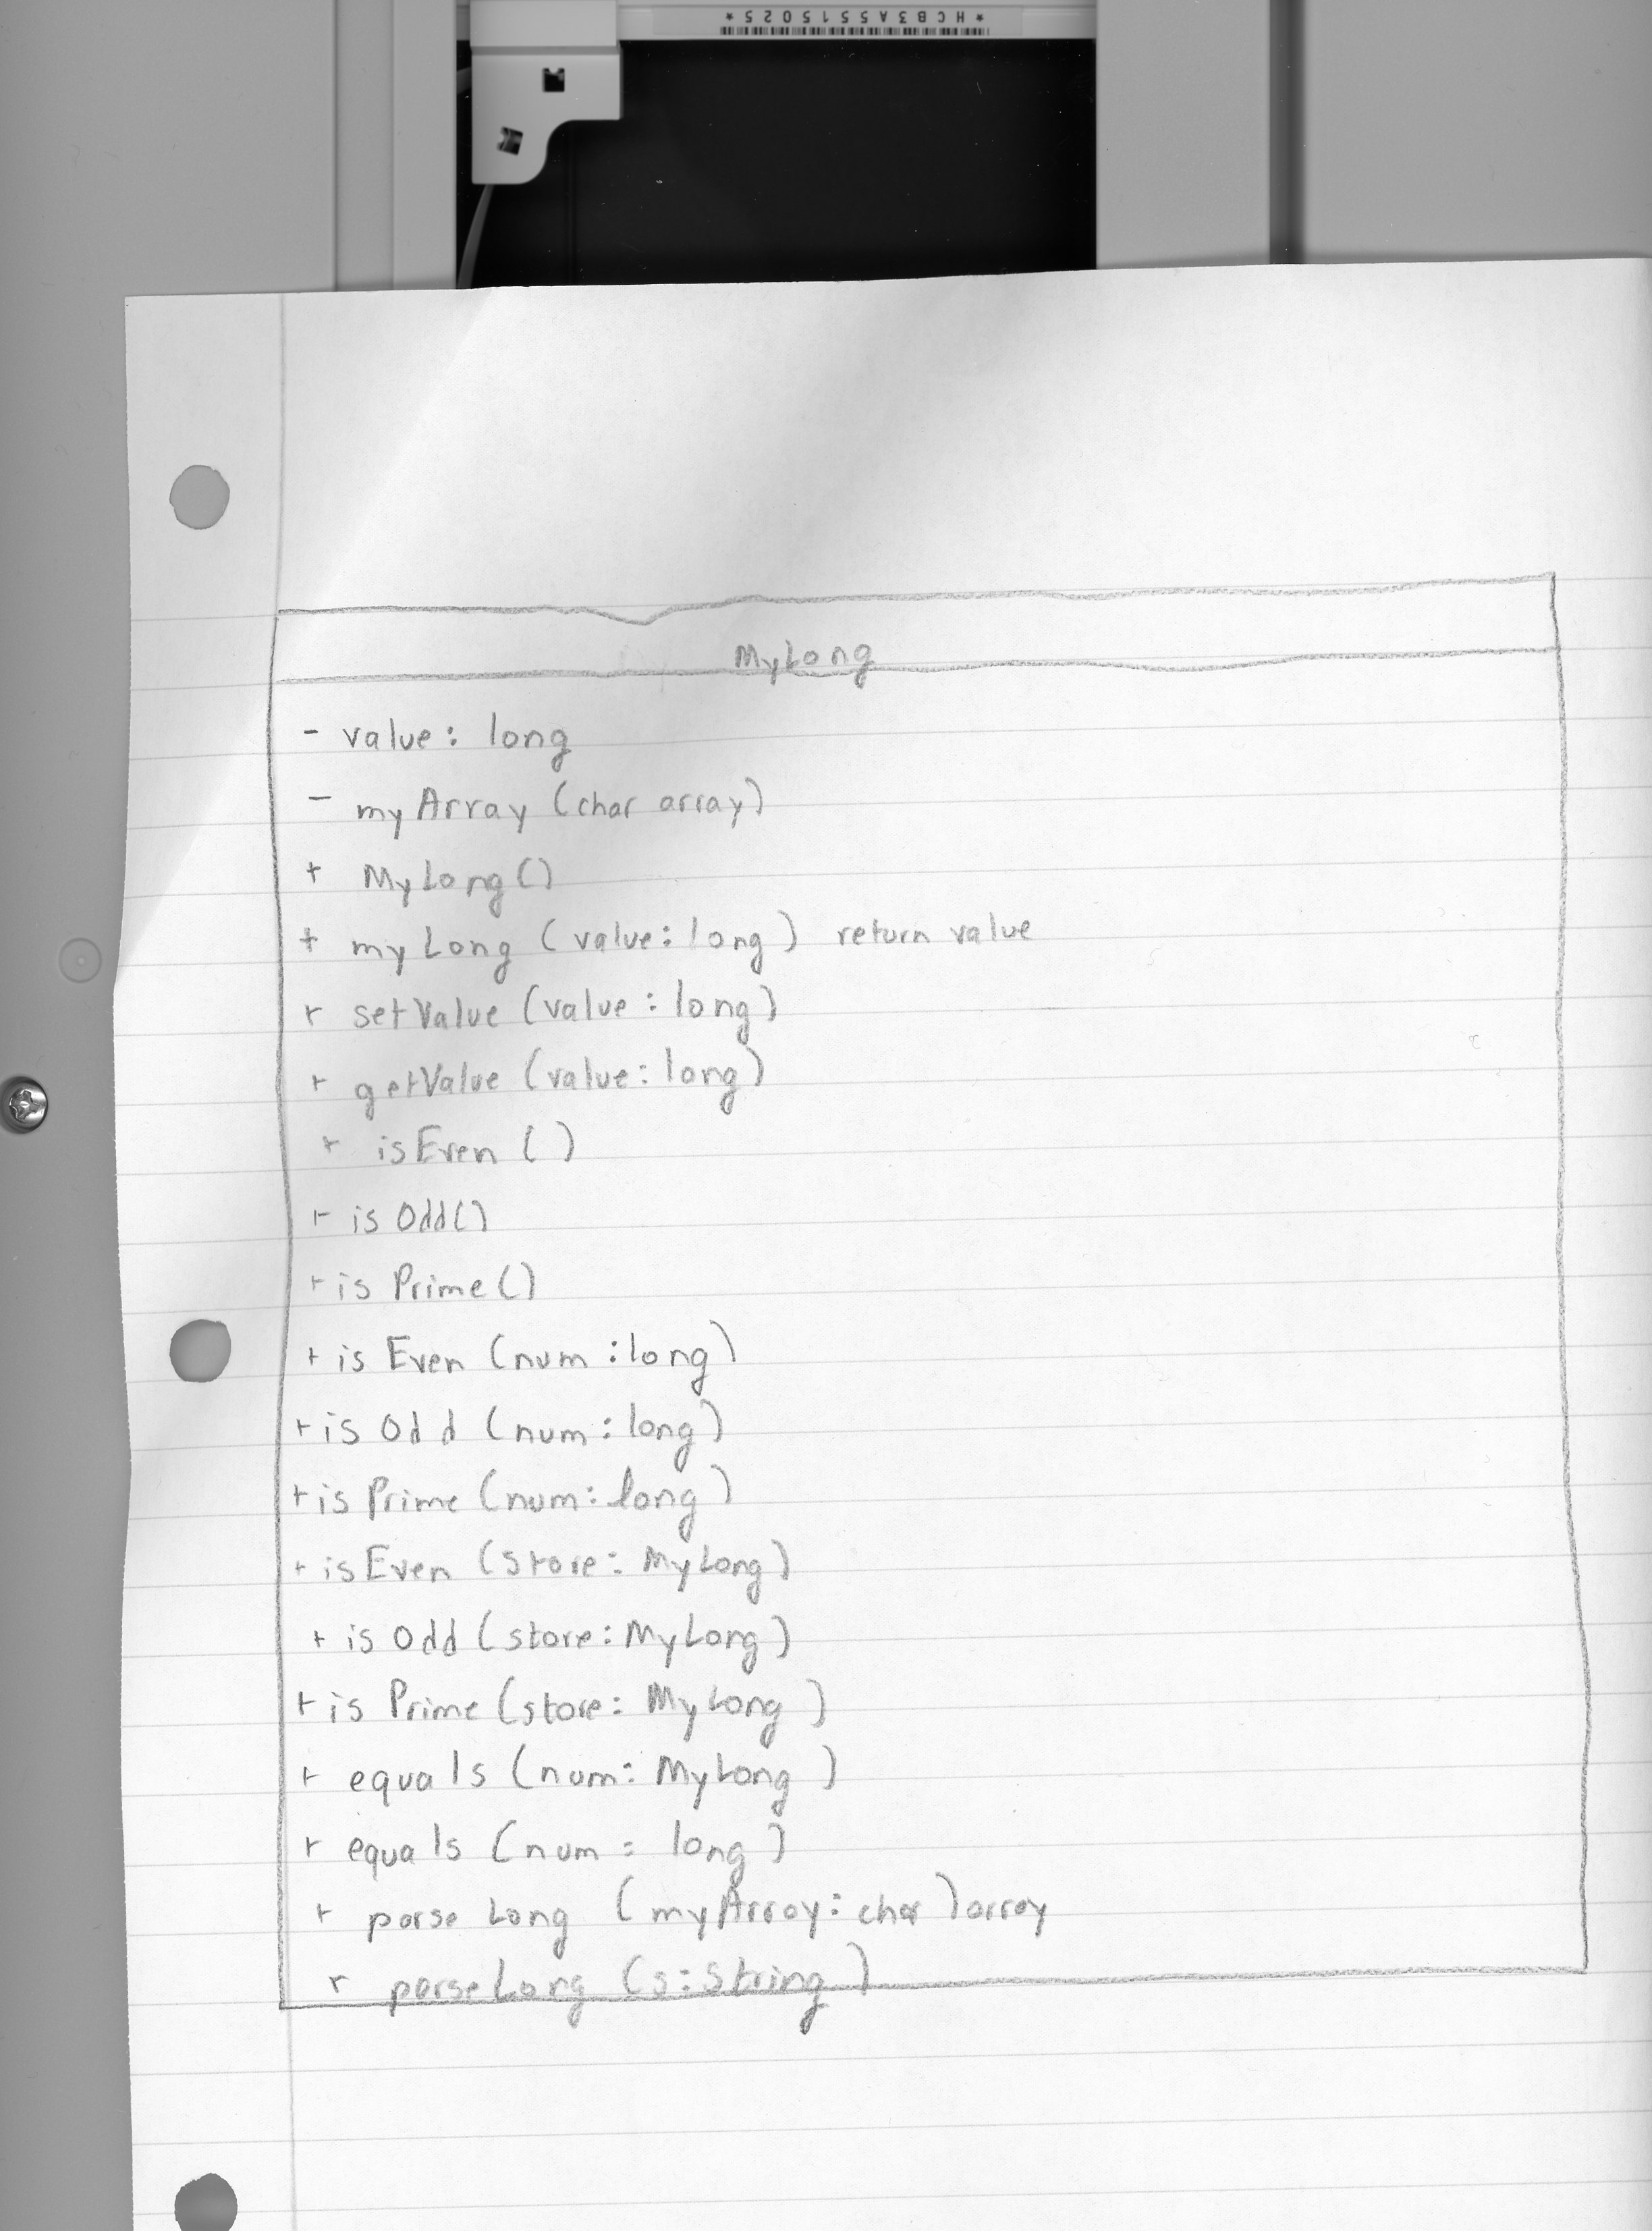 *HCB3A5515025*
MyLong
- value: long
- myArray (char array)
+ MyLong()
+ myLong (value: long) return value
+ setValue (value: long)
+ getValue (value: long)
+ isEven ()
+ is Odd()
+ is Prime()
+ is Even (num: long)
+ is Odd (num: long)
+ is Prime (num: long)
+ isEven (store: MyLong)
+ is Odd (store: MyLong)
+ is Prime (store: MyLong)
+ equals (num: MyLong)
+ equals (num: long)
+ parse Long (myArray: char) array
+ parseLong (s: String)